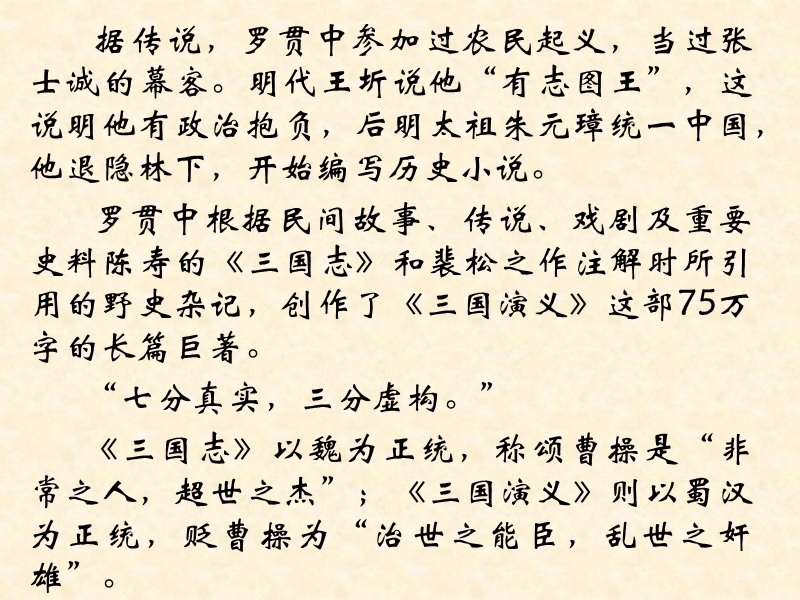 据传说，罗贯中参加过农民起义，当过张
士诚的幕客。明代王圻说他“有志图王”，这
说明他有政治抱负，后明太祖朱元璋统一中国，
他退隐林下，开始编写历史小说。
罗贯中根据民间故事、传说、戏剧及重要
史料陈寿的《三国志》和裴松之作注解时所引
用的野史杂记，创作了《三国演义》这部75万
字的长篇巨著。
“七分真实，三分虚构。”
《三国志》以魏为正统，称颂曹操是“非
常之人，超世之杰”；《三国演义》则以蜀汉
为正统，贬曹操为“治世之能臣，乱世之奸
雄”。